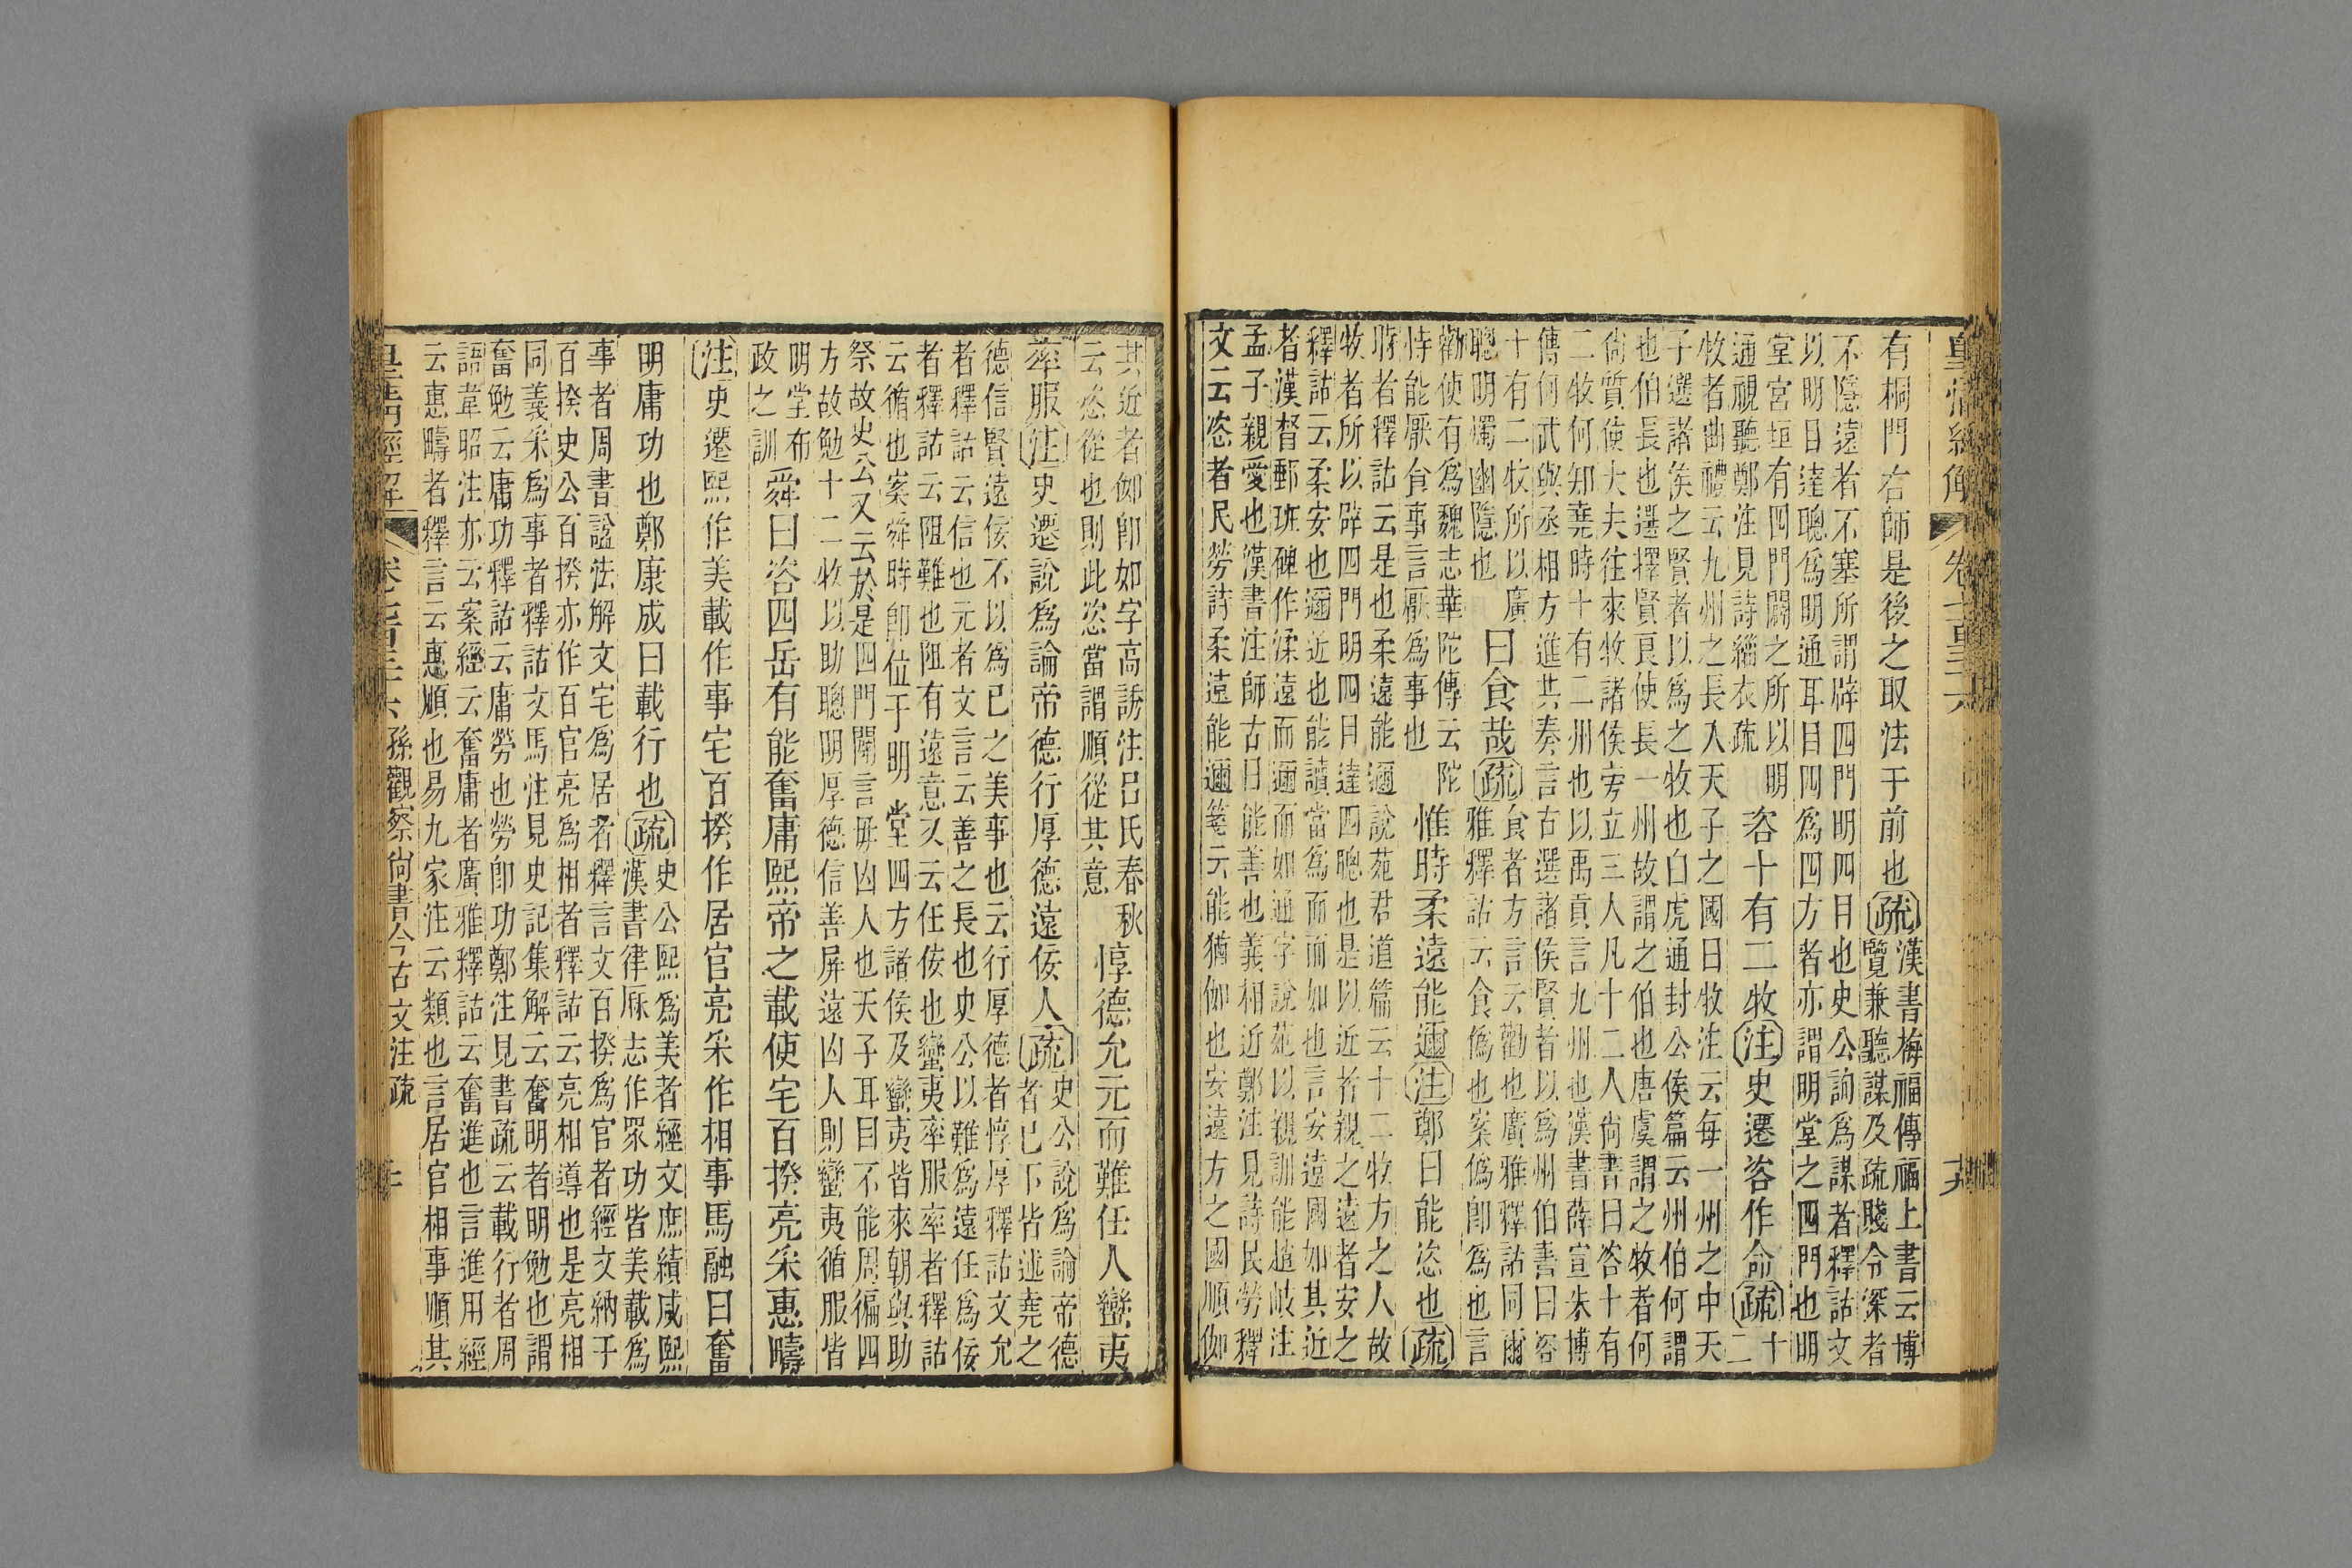 皇清經解 卷七百三十六 十九
有桐門右師是後之取法于前也疏
漢書梅福傳福上書云博
覽兼聽謀及疏賤令深者
不隱遠者不塞所謂辟四門明四目也史公詢為謀者釋詁文
以明目達聰為明通耳目四為四方者亦謂明堂之四門也明
堂宮垣有四門闢之所以明
通視聽鄭注見詩緇衣疏
咨十有二牧注史遷咨作命疏
十
二
牧者曲禮云九州之長入天子之國曰牧注云每一州之中天
子選諸侯之賢者以為之牧也白虎通封公侯篇云州伯何謂
也伯長也選擇賢良使長一州故謂之伯也唐虞謂之牧者何
尚質使大夫往來牧諸侯旁立三人凡十二人尚書曰咨十有
二牧何知堯時十有二州也以禹貢言九州也漢書薛宣朱博
傳何武與丞相方進共奏言古選諸侯賢者以為州伯書曰咨
十有二牧所以廣
聰明燭幽隱也
曰食哉疏
食者方言云勸也廣雅釋詁同爾
雅釋詁云食偽也案偽即為也言
勸使有為魏志華陀傳云陀
恃能厭食事言厭為事也
惟時柔遠能邇注鄭曰能恣也疏
時者釋詁云是也柔遠能邇說苑君道篇云十二牧方之人故
牧者所以辟四門明四目達四聰也是以近者親之遠者安之
釋詁云柔安也邇近也能讀當為而而如也言安遠國如其近
者漢督郵班碑作渘遠而邇而如通字說苑以親訓能趙岐注
孟子親愛也漢書注師古曰能善也義相近鄭注見詩民勞釋
文云恣者民勞詩柔遠能邇箋云能猶伽也安遠方之國順伽
其近者伽卽如字高誘注呂氏春秋
云恣從也則此恣當謂順從其意
惇德允元而難任人蠻夷
率服注史遷說為論帝德行厚德遠佞人疏
史公說為論帝德
者已下皆述堯之
德信賢遠佞不以為已之美事也云行厚德者惇厚釋詁文允
者釋詁云信也元者文言云善之長也史公以難為遠任為佞
者釋詁云阻難也阻有遠意又云任佞也蠻夷率服率者釋詁
云循也案舜時卽位于明堂四方諸侯及蠻夷皆來朝與助
祭故史公又云於是四門闢言毋凶人也天子耳目不能周徧四
方故勉十二牧以助聰明厚德信善屏遠凶人則蠻夷循服皆
明堂布
政之訓
舜曰咨四岳有能奮庸熙帝之載使宅百揆亮采惠疇
注史遷熙作美載作事宅百揆作居官亮采作相事馬融曰奮
明庸功也鄭康成曰載行也疏
史公熙為美者經文庶績咸熙
漢書律厤志作眾功皆美載為
事者周書諡法解文宅為居者釋言文百揆為官者經文納于
百揆史公百揆亦作百官亮為相者釋詁云亮相導也是亮相
同義采為事者釋詁文馬注見史記集解云奮明者明勉也謂
奮勉云庸功釋詁云庸勞也勞卽功鄭注見書疏云載行者周
語韋昭注亦云案經云奮庸者廣雅釋詁云奮進也言進用經
云惠疇者釋言云惠順也易九家注云類也言居官相事順其
皇清經解 卷七百三十六 孫觀察尚書今古文注疏 二十